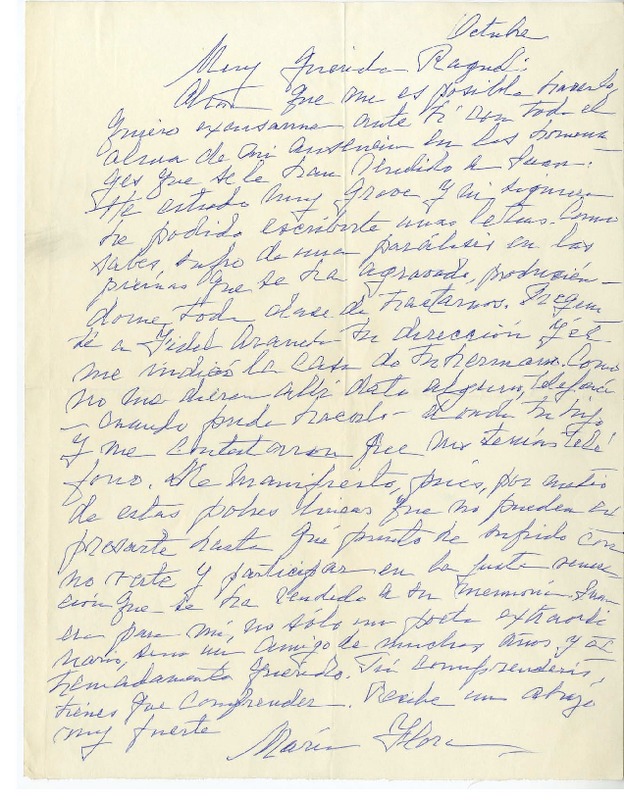 Octubre
Muy Querida Raquel:
Ahora que me es posible hacerlo,
quiero excusarme ante ti con toda el
alma de mi ausencia en los homena-
ges que se le han rendido a Juan.
He estado muy grave y ni siquiera
he podido escribirte unas letras. Como
sabes, sufro de una parálisis en las
piernas que se ha agravado, producién-
dome toda clase de trastornos. Pregun-
té a Fidel Araneda tu dirección y él
me indicó la casa de tu hermano. Como
no me dieran allí dato alguno, telefonié
- cuando pude hacerlo - donde tu hijo
y me contestaron que no tenías telé
fono. Te manifiesto, pues, por medio
de estas pobres líneas que no pueden ex
presarte hasta qué punto he sufrido con
no verte y participar en la justa
ción que se ha rendido a su memoria. Juan
era para mí, no sólo un poeta extraordi
nario, sino un amigo de muchos años y ex
tremadamente querido. Tú comprenderás,
tienes que comprender. Recibe un abrazo
muy fuerte
María Flora